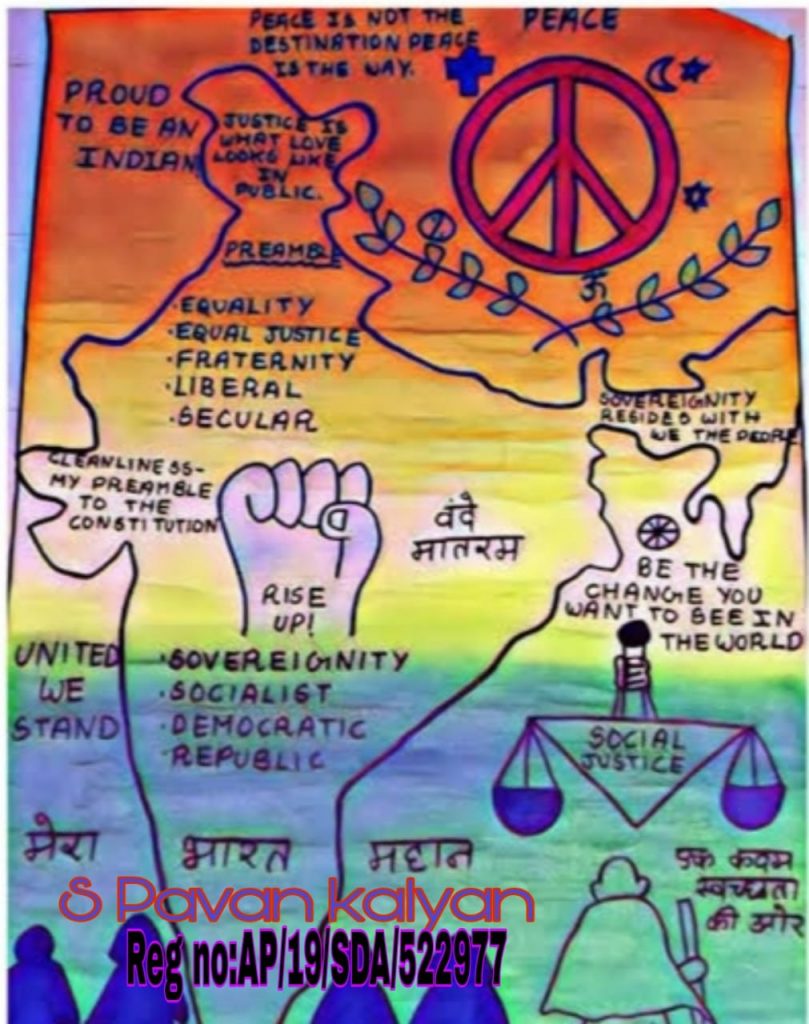 PEACE IS NOT THE
DESTINATION PEACE
IS THE WAY.
PEACE
PROUD
TO BE AN
INDIAN
JUSTICE IS
WHAT LOVE
LOOKS LIKE
IN
PUBLIC.
PREAMBLE
• EQUALITY
• EQUAL JUSTICE
• FRATERNITY
• LIBERAL
• SECULAR
ॐ
SOVEREIGNITY
RESIDES WITH
WE THE PEOPLE
CLEANLINESS-
MY PREAMBLE
TO THE
CONSTITUTION
वंदे
मातरम
RISE
UP!
BE THE
CHANGE YOU
WANT TO SEE IN
THE WORLD
UNITED
WE
STAND
• SOVEREIGNITY
• SOCIALIST
• DEMOCRATIC
• REPUBLIC
SOCIAL
JUSTICE
मेरा भारत महान
एक कदम
स्वच्छता
की ओर
S Pavan kalyan
Reg no:AP/19/SDA/522977